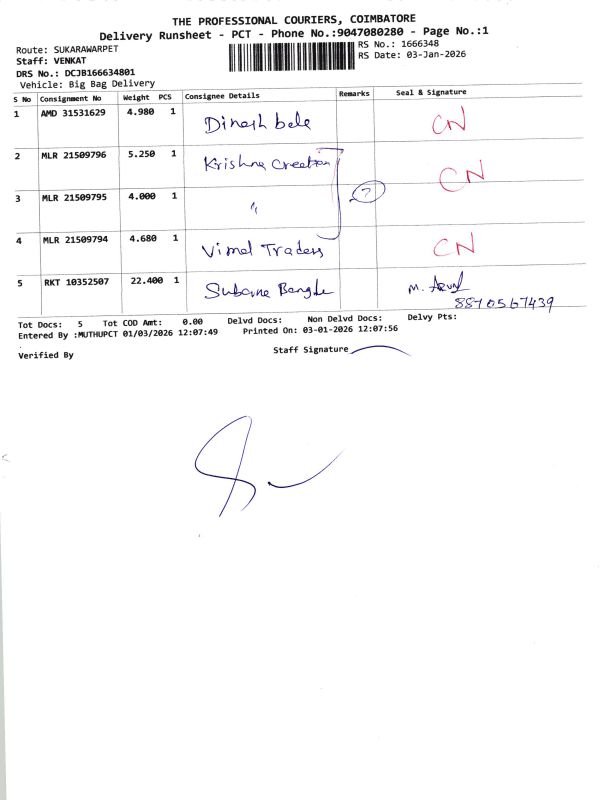 THE PROFESSIONAL COURIERS, COIMBATORE
Delivery Runsheet - PCT - Phone No.:9047080280 - Page No.:1
Route: SUKARAWARPET
RS No.: 1666348
Staff: VENKAT
RS Date: 03-Jan-2026
DRS No.: DCJB166634801
Vehicle: Big Bag Delivery
S No Consignment No Weight PCS Consignee Details Remarks Seal & Signature
1 AMD 31531629 4.980 1 Dinesh CN
2 MLR 21509796 5.250 1 Krishna Creation CN
3 MLR 21509795 4.000 1 " ?
4 MLR 21509794 4.680 1 Vimal Traders CN
5 RKT 10352507 22.400 1 M. Arul
8870567439
Tot Docs: 5 Tot COD Amt: 0.00 Delvd Docs: Non Delvd Docs: Delvy Pts:
Entered By :MUTHUPCT 01/03/2026 12:07:49 Printed On: 03-01-2026 12:07:56
Verified By
Staff Signature